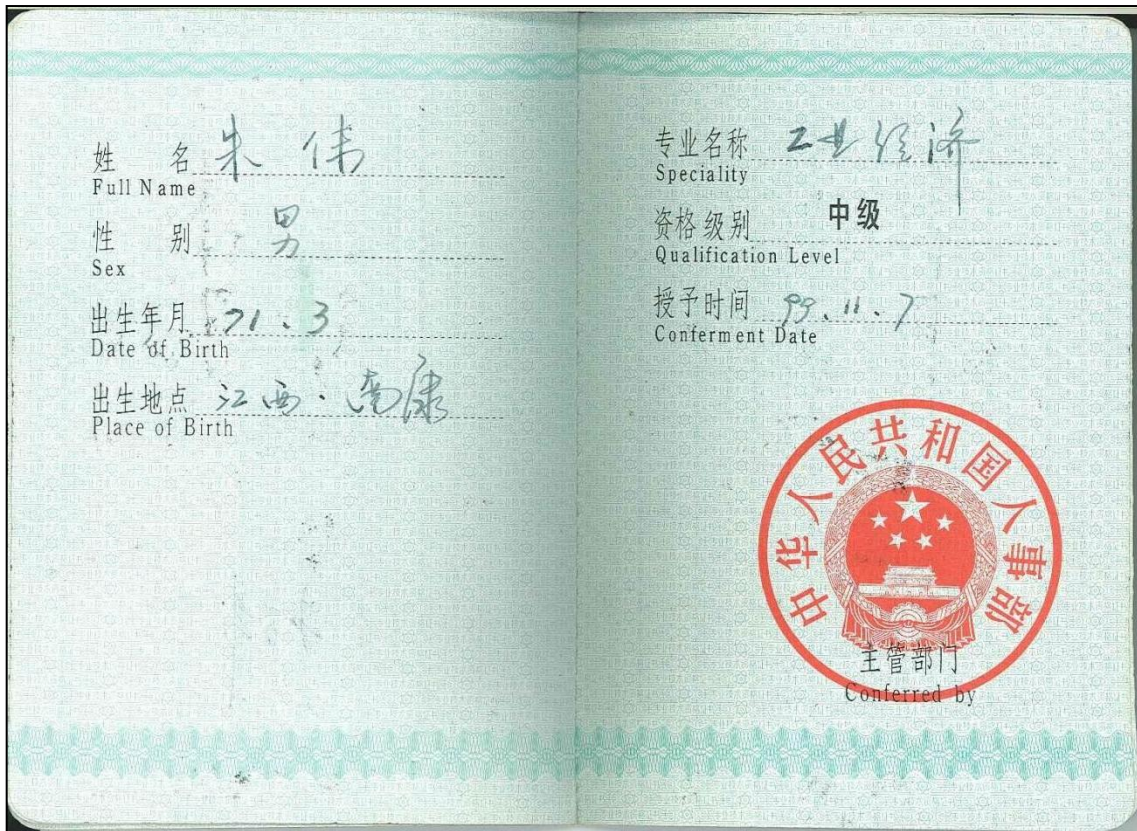 姓 名 朱伟
Full Name
性 别 男
Sex
出生年月 71.3
Date of Birth
出生地点 江西·南康
Place of Birth
专业名称 工业经济
Speciality
资格级别 中级
Qualification Level
授予时间 99.11.7
Conferment Date
中华人民共和国人事部
主管部门
Conferred by